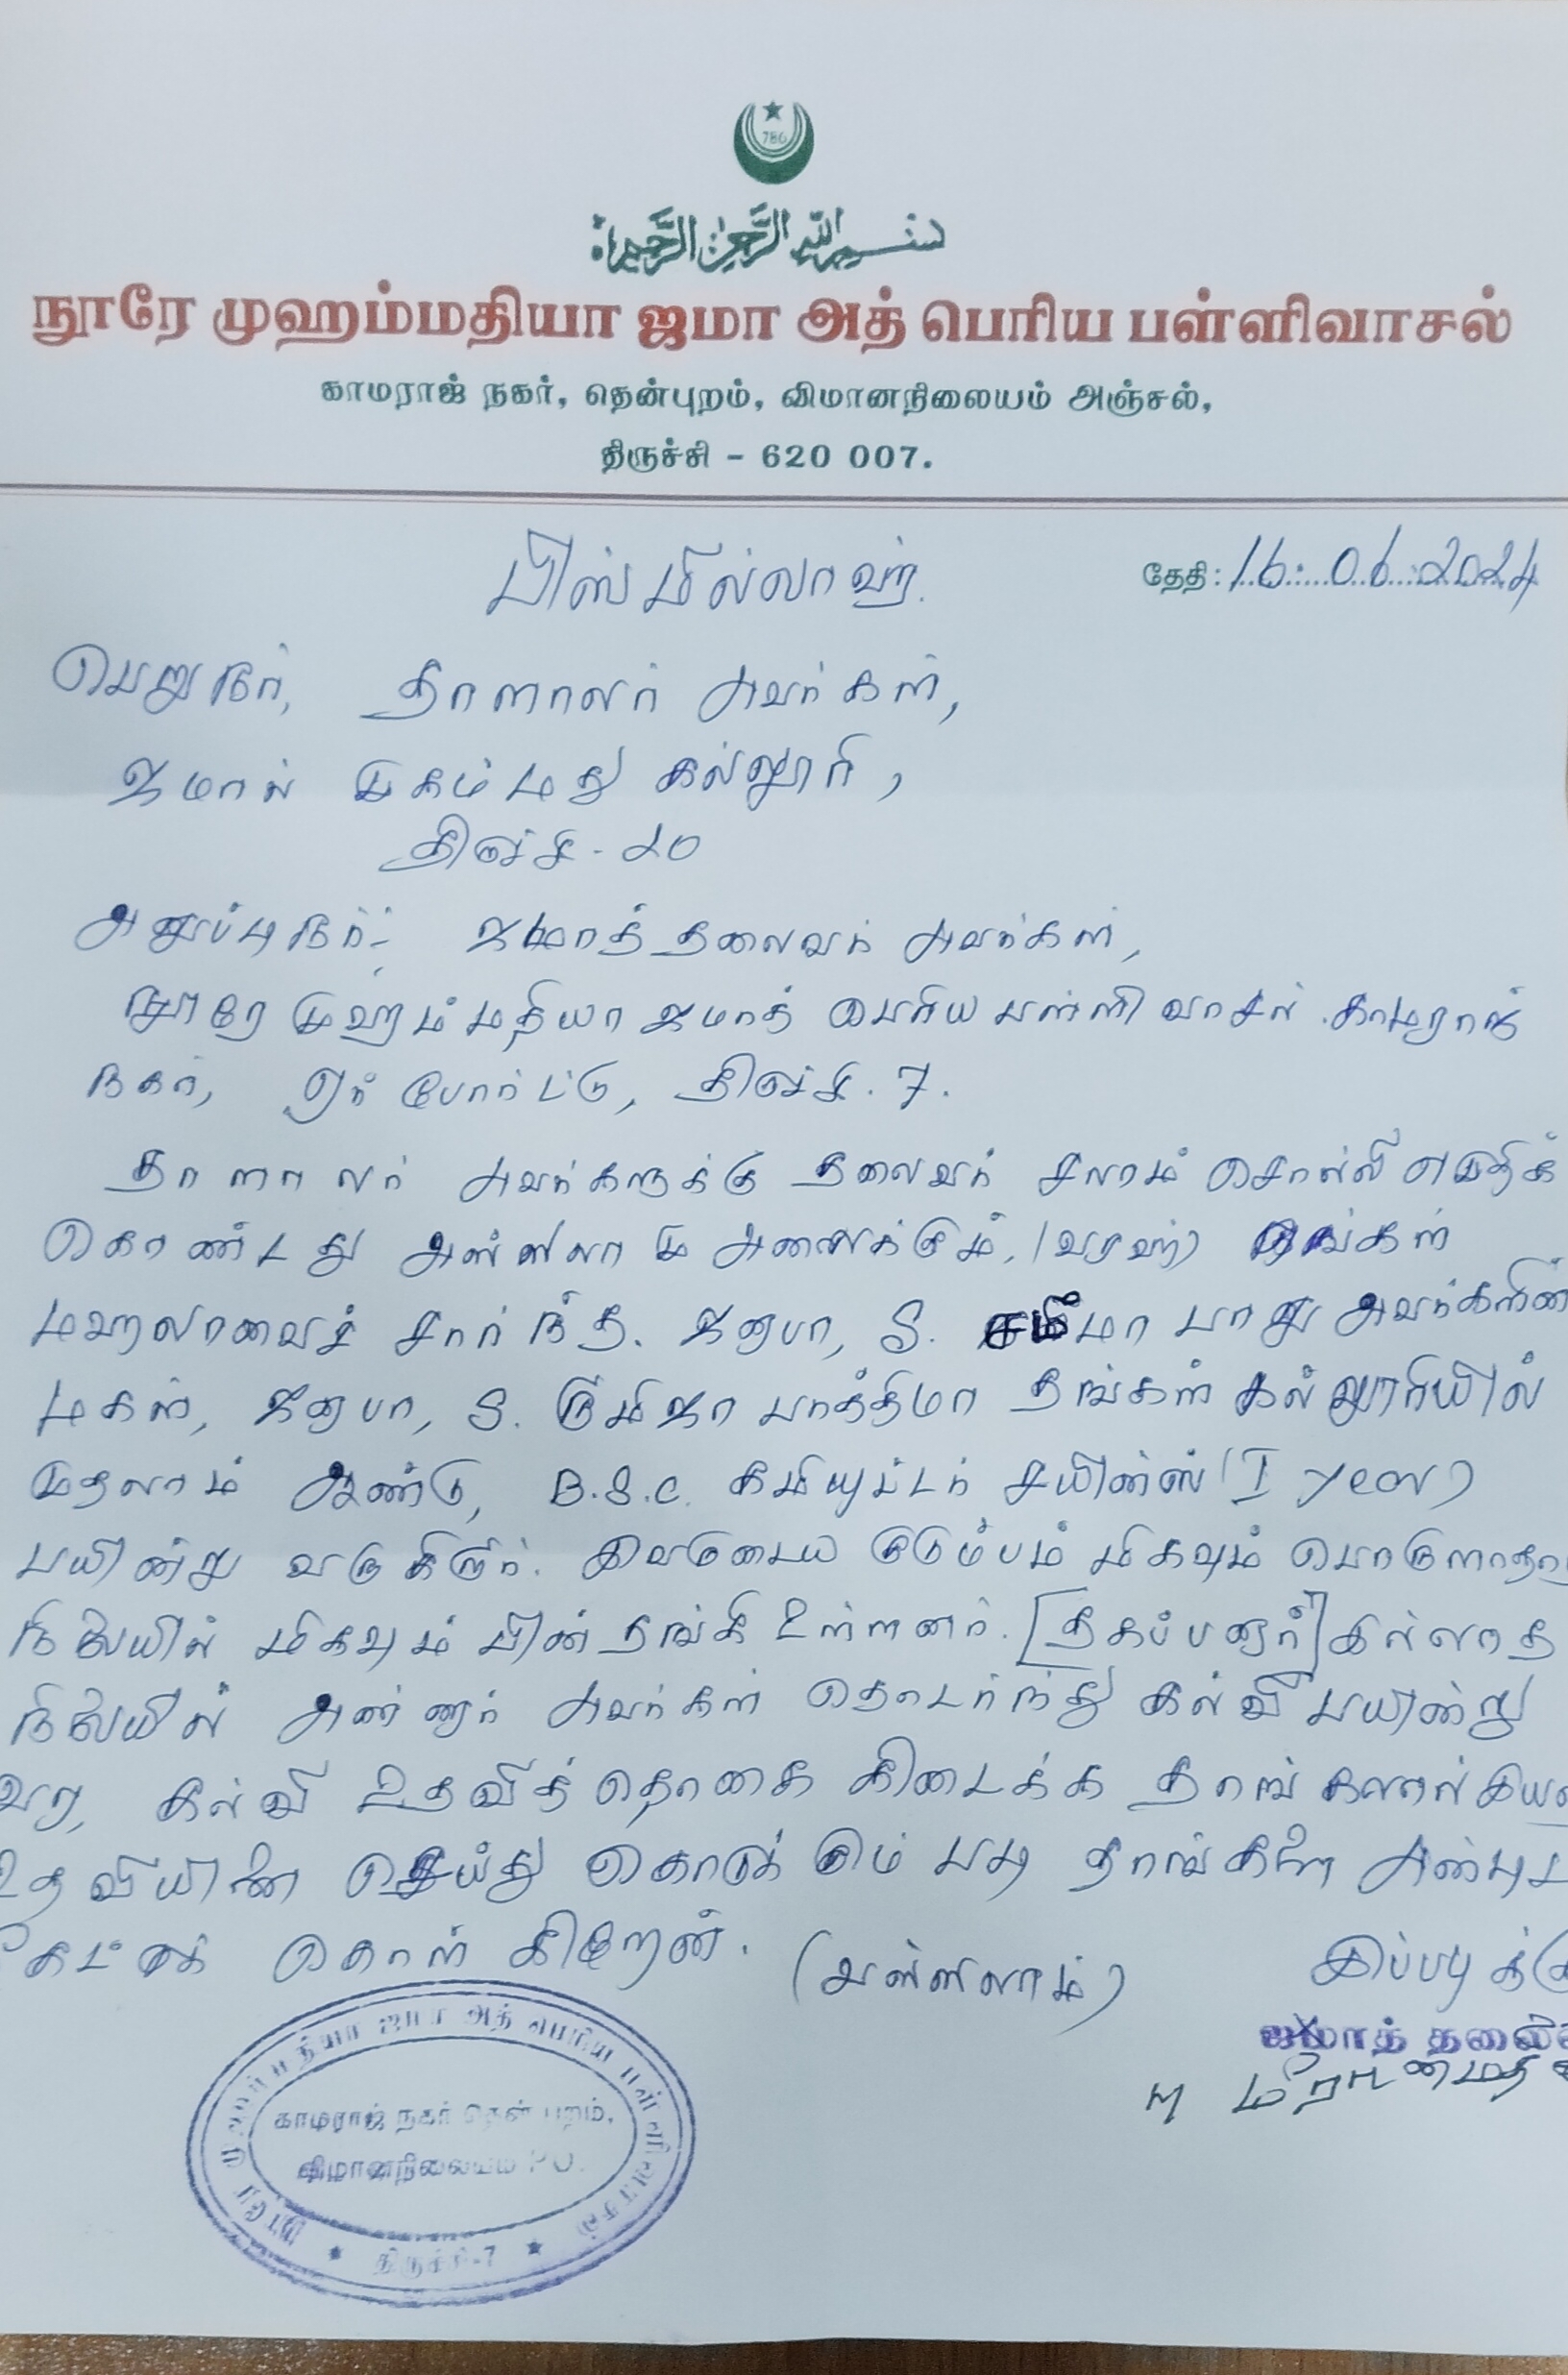 786
بسم الله الرحمن الرحيم
நூரே முஹம்மதியா ஜமா அத் பெரிய பள்ளிவாசல்
காமராஜ் நகர், தென்புறம், விமானநிலையம் அஞ்சல்,
திருச்சி - 620 007.
பிஸ்மில்லாஹ்.
தேதி: 16. 06. 2024
பெறுநர், தாளாலர் அவர்கள்,
ஜமால் முகம்மது கல்லூரி,
திருச்சி - 20
அனுப்புநர்:- ஜமாத் தலைவர் அவர்கள்,
நூரே முஹம்மதியா ஜமாத் பெரிய பள்ளி வாசல் காமராஜ்
நகர், ஏர் போர்ட்டு, திருச்சி. 7.
தாளாலர் அவர்களுக்கு தலைவர் சலாம் சொல்லி எழுதிக்
கொண்டது அஸ்ஸலாமு அலைக்கும், (வரஹ்) எங்கள்
மஹல்லாவைச் சார்ந்த. ஜனாபா, S. பானு அவர்களின்
மகள், ஜனாபா, S. பாத்திமா தங்கள் கல்லூரியில்
முதலாம் ஆண்டு, B.S.C. கம்பியுட்டர் சயின்ஸ் (I year)
பயின்று வருகிறார். இவருடைய குடும்பம் மிகவும்
நிலையில் மிகவும் பின் தங்கி உள்ளனர். [தகப்பனார்] இல்லாத
நிலையில் அன்னார் அவர்கள் தொடர்ந்து கல்வி பயின்று
வர, கல்வி உதவித் தொகை கிடைக்க தாங்களால்
உதவியினை செய்து கொடுக்கும் படி தாங்களை
கேட்டுக் கொள்கிறேன். (வஸ்ஸலாம்)
ஜமாத்
M
நூரே முஹம்மதியா ஜமா அத் பெரிய பள்ளிவாசல்
காமராஜ் நகர் தென் புறம்,
விமானநிலையம் P.O.
★ திருச்சி-7 ★